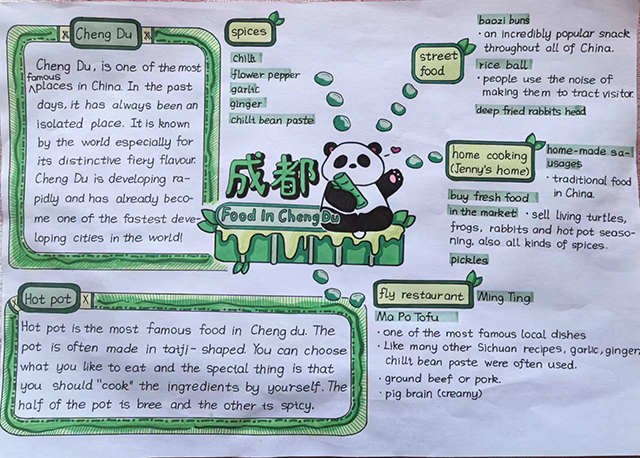 Cheng Du
Cheng Du, is one of the most
famous
places in China. In the past
days, it has always been an
isolated place. It is known
by the world especially for
its distinctive fiery flavour.
Cheng Du is developing ra-
pidly and has already beco-
me one of the fastest deve-
loping cities in the world!
spices
chilli
flower pepper
garlic
ginger
chillt bean paste
street
food
baozi buns
· an incredibly popular snack
throughout all of China.
rice ball
· people use the noise of
making them to tract visitor.
deep fried rabbits head
成都
Food in Cheng Du
home cooking
(Jenny's home)
home-made sa-
usages
· traditional food
in China.
buy fresh food
in the market
· sell living turtles,
frogs, rabbits and hot pot seaso-
ning, also all kinds of spices.
pickles
Hot pot
Hot pot is the most famous food in Cheng du. The
pot is often made in taiji-shaped. You can choose
what you like to eat and the special thing is that
you should "cook" the ingredients by yourself. The
half of the pot is bree and the other is spicy.
fly restaurant
Ming Ting
Ma Po Tofu
· one of the most famous local dishes
· Like many other Sichuan recipes, garlic, ginger,
chillt bean paste were often used.
· ground beef or pork.
· pig brain (creamy)